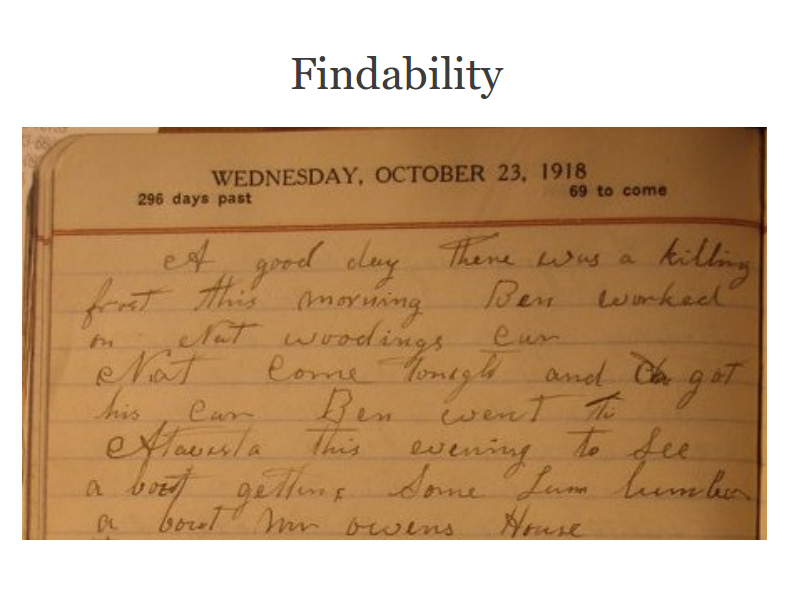 Findability
WEDNESDAY, OCTOBER 23, 1918
296 days past 69 to come
A good day There was a killing
frost this morning Ben worked
on Nat woodings car
Nat come tonight and got
his car Ben went to
this evening to see
a bout getting some lumber
a bout Mr owens House